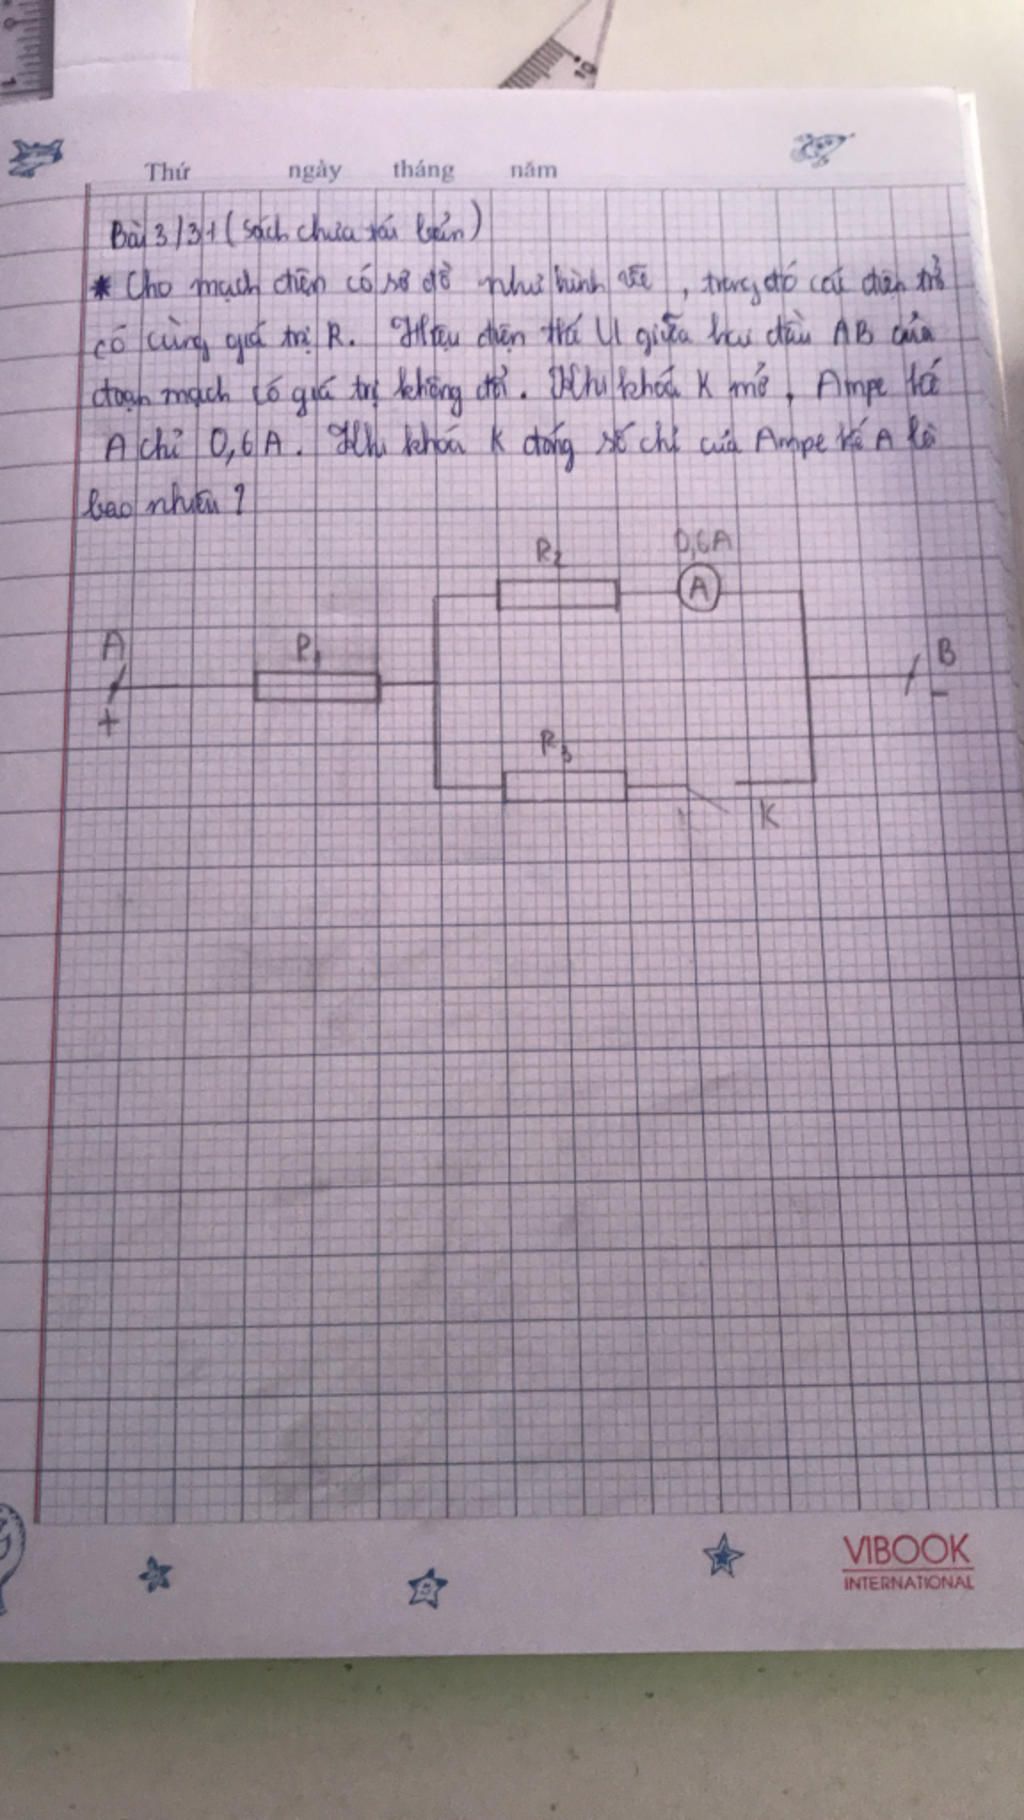 Thứ ngày tháng năm
Bài 3/31 (sách chưa tái bản)
* Cho mạch điện có sơ đồ như hình vẽ, trong đó các điện trở
có cùng giá trị R. Hiệu điện thế U giữa hai đầu AB của
đoạn mạch có giá trị không đổi. Khi khoá K mở, Ampe kế
A chỉ 0,6A. Khi khoá K đóng số chỉ của Ampe kế A là
bao nhiêu?
R2 0,6A
A
A R1 B
+ -
R3
K
VIBOOK
INTERNATIONAL